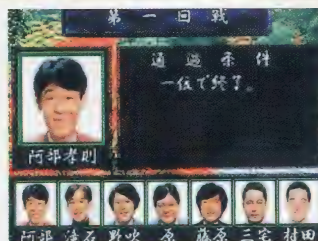 第一回戦
通過条件
一位で終了。
阿部孝則
阿部 浄石 野吹 原 藤原 三宅 村田